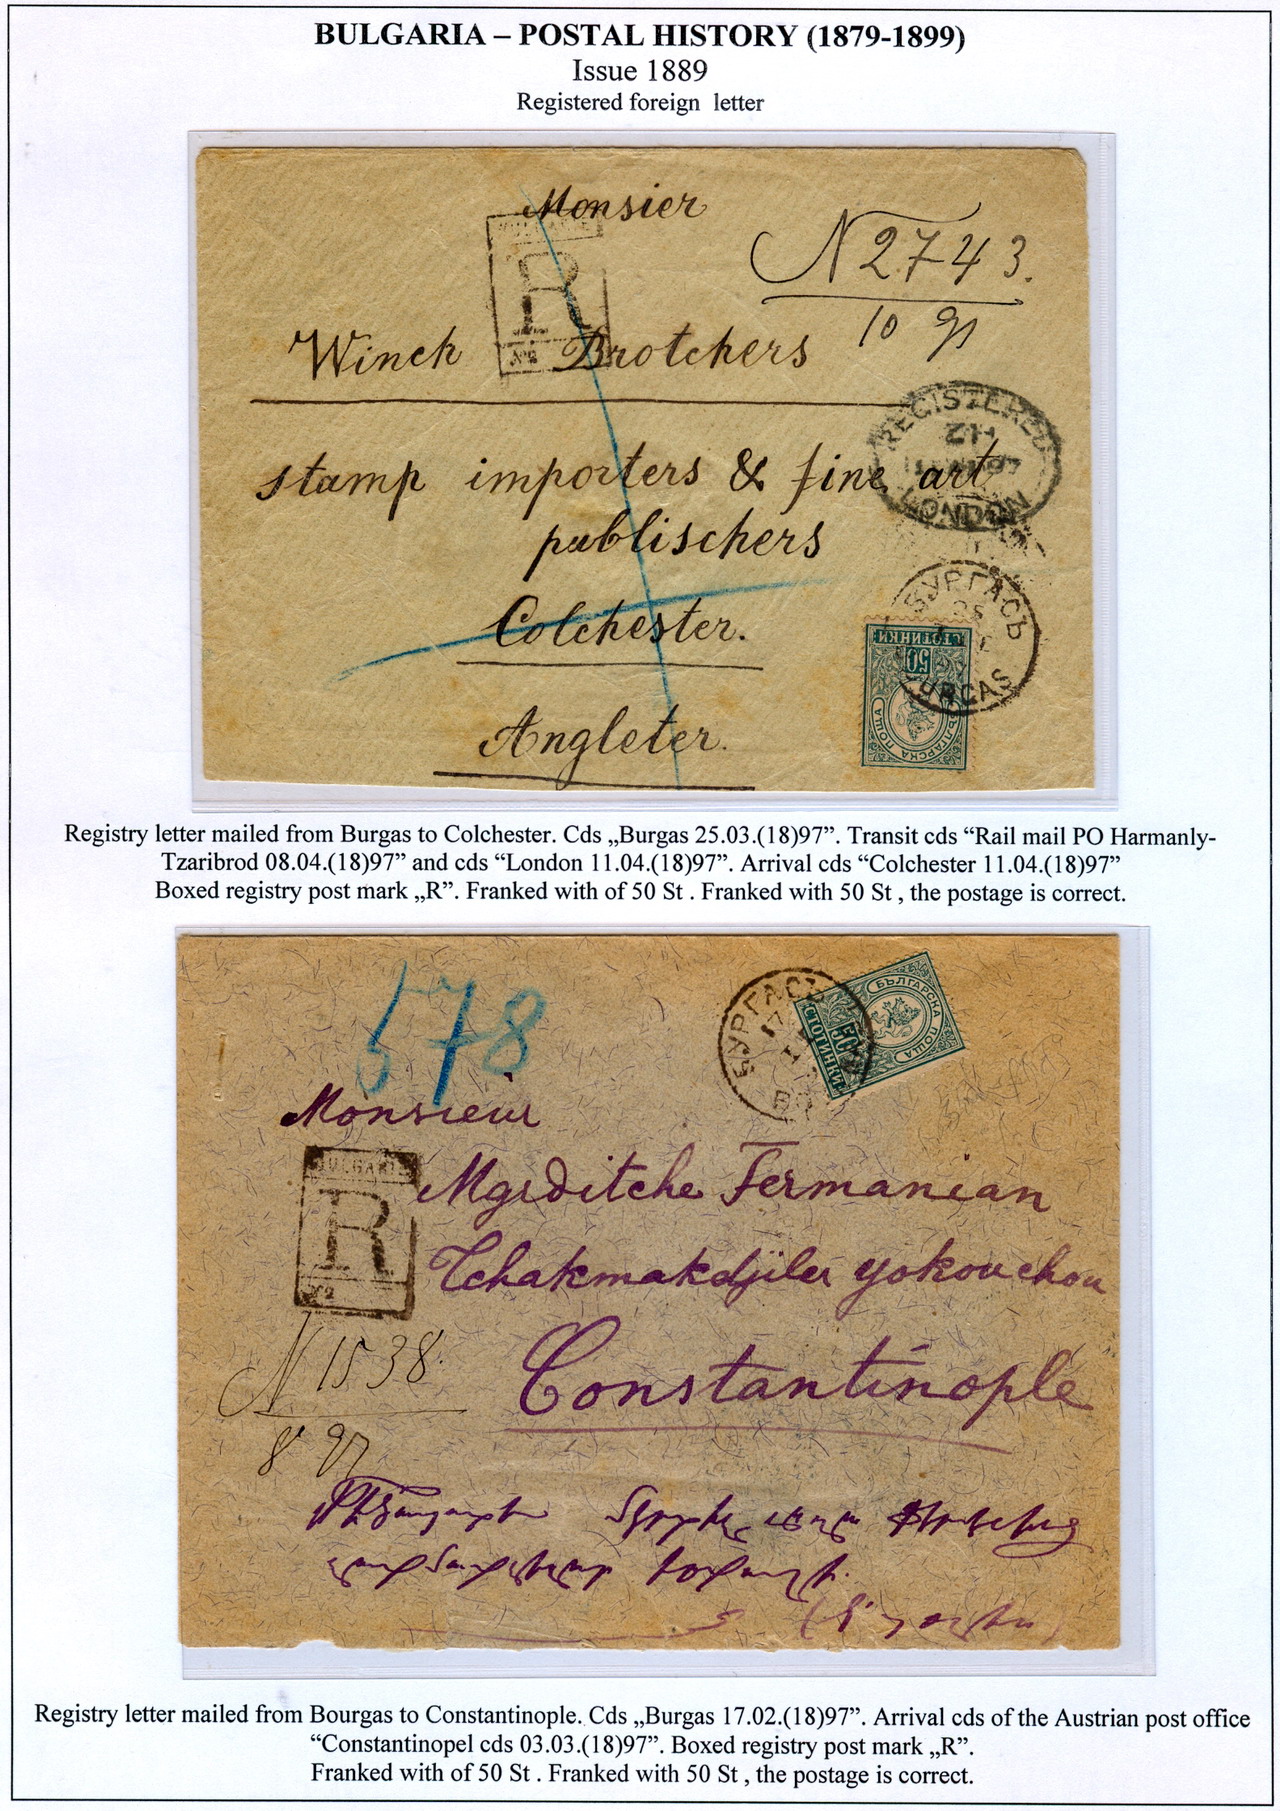 BULGARIA – POSTAL HISTORY (1879-1899)
Issue 1889
Registered foreign letter
Monsier
BULGARIE
R
№
N 2743.
10 gr
Winch Brotchers
REGISTERED
97
LONDON
stamp importers & fine art
publischers
Colchester.
БУРГАСЪ
25
BURGAS
СТОТИНКИ
50
БЪЛГАРСКА ПОЩА
Angleter.
Registry letter mailed from Burgas to Colchester. Cds „Burgas 25.03.(18)97”. Transit cds “Rail mail PO Harmanly-
Tzaribrod 08.04.(18)97” and cds “London 11.04.(18)97”. Arrival cds “Colchester 11.04.(18)97”
Boxed registry post mark „R”. Franked with of 50 St . Franked with 50 St , the postage is correct.
578
БУРГАСЪ
17
БЪЛГАРСКА ПОЩА
50
СТОТИНКИ
Monsieur
BULGARIE
R
№
Mgrditche Fermanian
Tchakmakdjiler yokouchou
N 1538.
Constantinople
8 gr
Registry letter mailed from Bourgas to Constantinople. Cds „Burgas 17.02.(18)97”. Arrival cds of the Austrian post office
“Constantinopel cds 03.03.(18)97”. Boxed registry post mark „R”.
Franked with of 50 St . Franked with 50 St , the postage is correct.